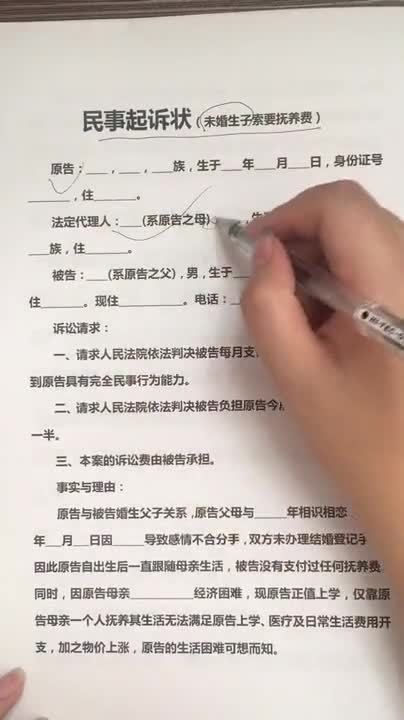 民事起诉状（未婚生子索要抚养费）
原告：___，___，___族，生于___年___月___日，身份证号
______，住______。
法定代理人：___(系原告之母)
___族，住______。
被告：___(系原告之父)，男，生于
住______。现住________。电话：
诉讼请求：
一、请求人民法院依法判决被告每月支
到原告具有完全民事行为能力。
二、请求人民法院依法判决被告负担原告今
一半。
三、本案的诉讼费由被告承担。
事实与理由：
原告与被告婚生父子关系，原告父母与_____年相识相恋
年___月___日因____导致感情不合分手，双方未办理结婚登记手
因此原告自出生后一直跟随母亲生活，被告没有支付过任何抚养费
同时，因原告母亲__________经济困难，现原告正值上学，仅靠原
告母亲一个人抚养其生活无法满足原告上学、医疗及日常生活费用开
支，加之物价上涨，原告的生活困难可想而知。